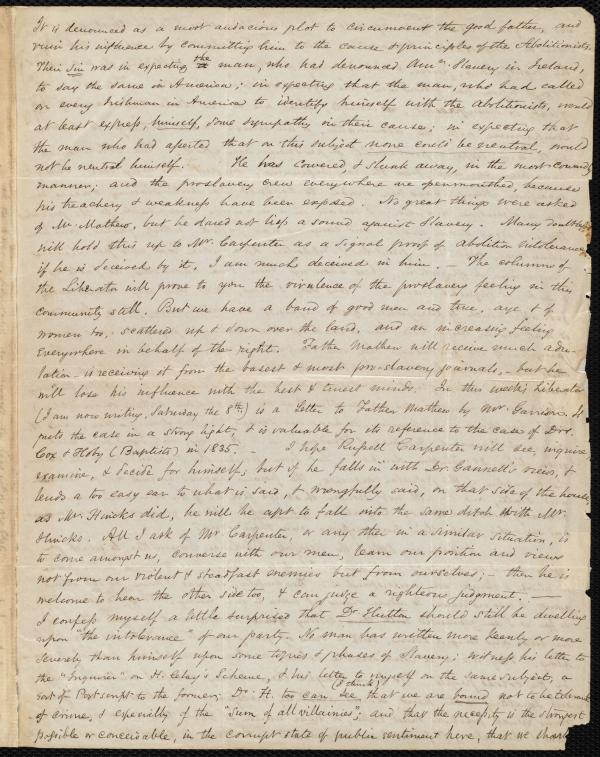 It is denounced as a most audacious plot to circumvent the good father, and
ruin his influence by committing him to the cause & principles of the Abolitionists.
Their sin was in expecting the man, who had denounced Amn. Slavery in Ireland,
to say the same in America; in expecting that the man, who had called
on every Irishman in America to identify himself with the abolitionists, would
at least express, himself, some sympathy in their cause; in expecting that
the man who had asserted that on this subject none could be neutral, would
not be neutral himself. He has cowered, & slunk away, in the most cowardly
manner; and the proslavery crew everywhere are openmouthed, because
his treachery & weakness have been exposed. No great things were asked
of Mr. Mathew, but he dared not lisp a sound against Slavery. Many doubtless
will hold this up to Mr. Carpenter as a signal proof of abolition intolerance;
if he is deceived by it, I am much deceived in him. The columns of
the Liberator will prove to you the virulence of the proslavery feeling in this
community still. But we have a band of good men and true, aye, & of
women too, scattered up & down over the land, and an increasing feeling
everywhere in behalf of the right. Father Mathew will receive much adu-
lation - is receiving it from the basest & most pro-slavery journals, - but he
will lose his influence with the best & truest minds. In this week's Liberator
(I am now writing, Saturday the 8th,) is a Letter to Father Mathew by Mr. Garrison. It
puts the case in a strong light, & is valuable for its reference to the case of Drs.
Cox & Hoby (Baptists) in 1835. - I hope Russell Carpenter will see, inquire,
examine, & decide for himself; but if he falls in with Dr. Gannett's views, &
lends a too easy ear to what is said, & wrongfully said, on that side of the house,
as Mr. Hincks did, he will be apt to fall into the same ditch with Mr.
Hincks. All I ask of Mr Carpenter, or any other in a similar situation, is
to come amongst us, converse with our men, learn our position and views
not from our violent & steadfast enemies but from ourselves; - then he is
welcome to hear the other side too, & can judge a righteous judgment. -
I confess myself a little surprised that Dr Hutton should still be dwelling
upon "the intolerance" of our party. No man has written more keenly or more
severely than himself upon some topics & phases of Slavery; witness his letter to
the "Inquirer" on H. Clay's Scheme, & his letter to myself on the same subject, a
sort of Postscript to the former. Dr. H. too can see, (I think) that we are bound not to be tolerant
of crime, & especially of the "Sum of all villainies"; and that the necessity is the strongest
possible or conceivable, in the corrupt state of public sentiment here, that we should